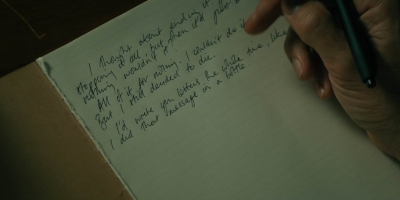 I thought about ending it
stopping it all but then I'd just
nothing wouldn't
All of it for nothing. I couldn't do it
But I still decided to die.
I'd write you letters the whole time, like
I did that message in a bottle